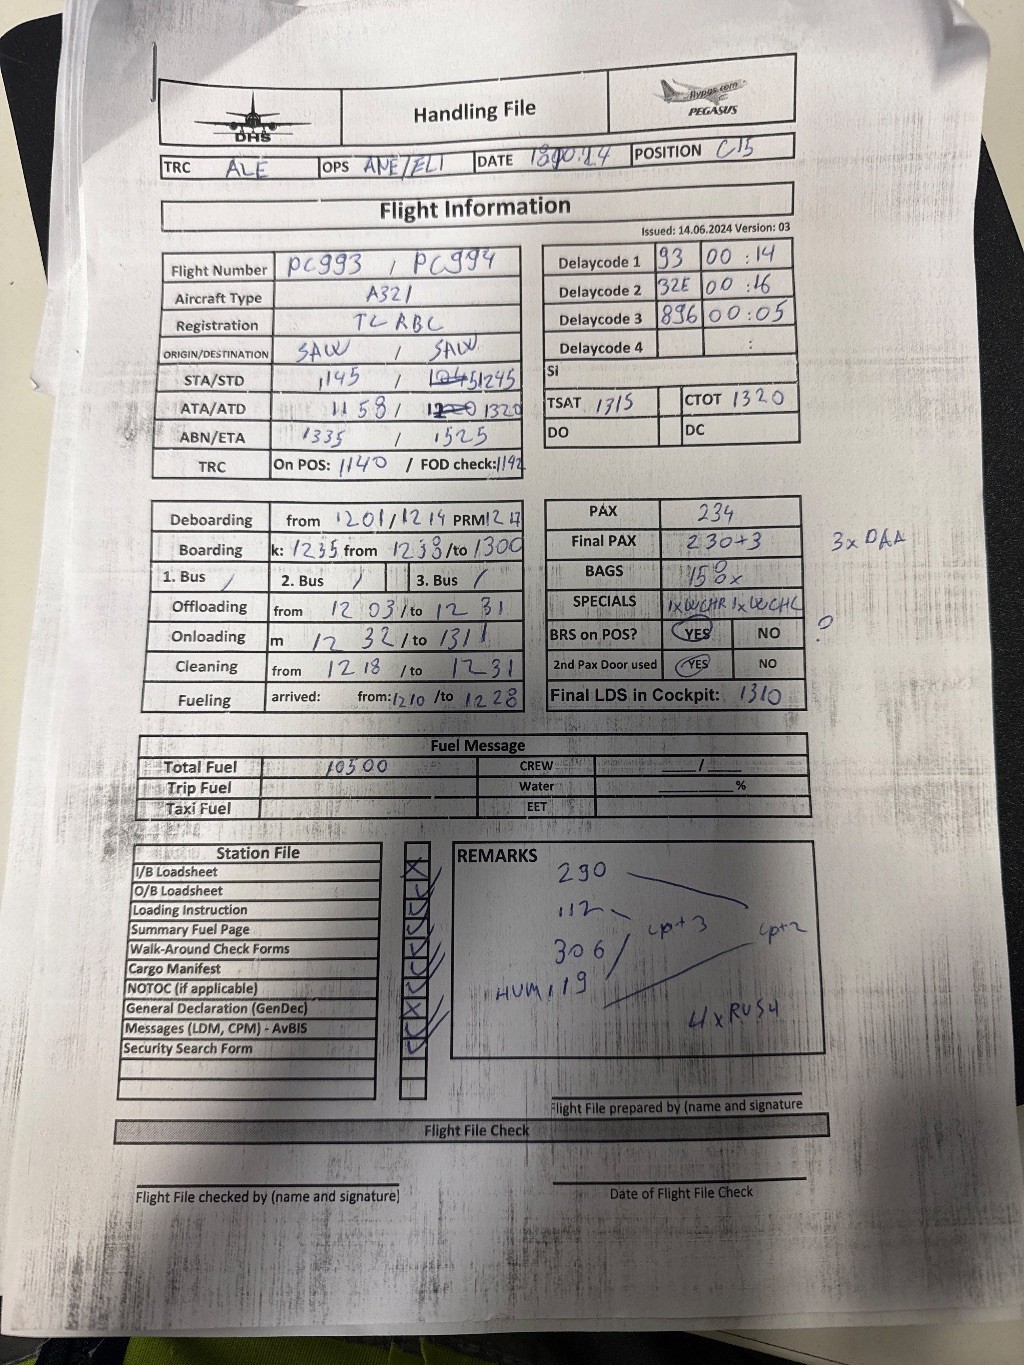 DHS
Handling File
flypgs.com
PEGASUS
TRC ALE OPS ANE/ELI DATE POSITION C15
Flight Information
Issued: 14.06.2024 Version: 03
Flight Number PC993 / PC994
Aircraft Type A321
Registration TC RBC
ORIGIN/DESTINATION SAW / SAW
STA/STD 1145 / 1245
ATA/ATD 1158 / 1320
ABN/ETA 1335 / 1525
TRC On POS: 1140 / FOD check:
Delaycode 1 93 00 : 14
Delaycode 2 32E 00 : 16
Delaycode 3 896 00 : 05
Delaycode 4 :
SI
TSAT 1315 CTOT 1320
DO DC
Deboarding from 1201 / 1214 PRM
Boarding k: 1235 from 1238 /to 1300
1. Bus / 2. Bus / 3. Bus /
Offloading from 12 03 /to 12 31
Onloading m 12 32 / to 1311
Cleaning from 12 18 /to 1231
Fueling arrived: from: 1210 /to 1228
PAX 234
Final PAX 230+3 3x DAA
BAGS 158x
SPECIALS 1xWCHR 1xWCHC
BRS on POS? YES NO ?
2nd Pax Door used YES NO
Final LDS in Cockpit: 1310
Fuel Message
Total Fuel 10500 CREW ___/___
Trip Fuel Water ______%
Taxi Fuel EET
Station File
I/B Loadsheet
O/B Loadsheet
Loading Instruction
Summary Fuel Page
Walk-Around Check Forms
Cargo Manifest
NOTOC (if applicable)
General Declaration (GenDec)
Messages (LDM, CPM) - AvBIS
Security Search Form
REMARKS
290
112
306 cp+3 cp+2
HUM 119
4xRUSH
Flight File prepared by (name and signature
Flight File Check
Flight File checked by (name and signature)
Date of Flight File Check